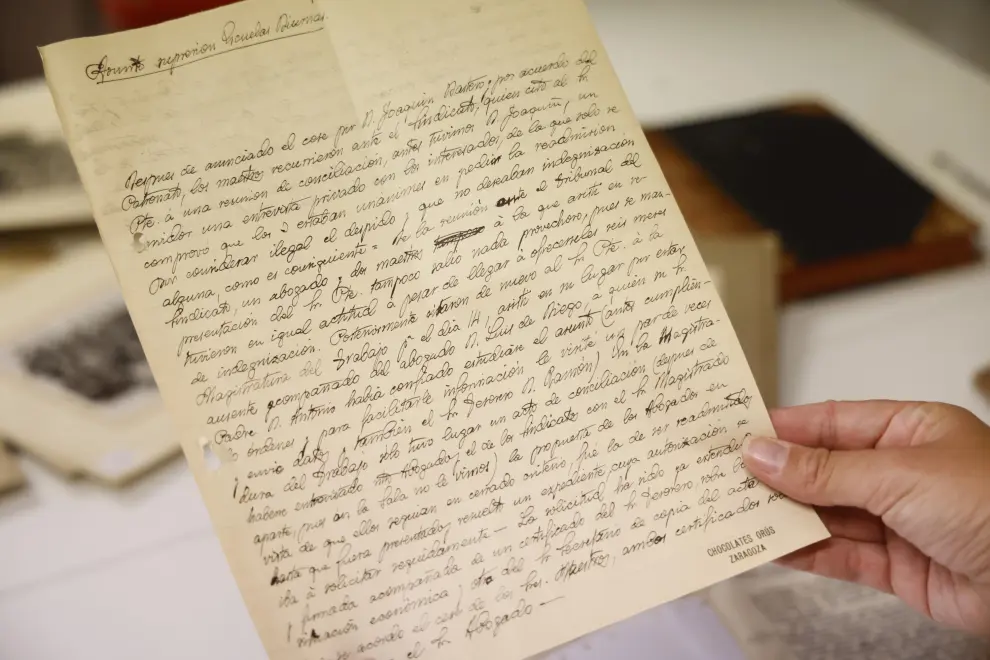 Asunto supresión Escuelas Diurnas
Después de anunciado el cese por D. Joaquín, por acuerdo del
Patronato, los maestros recurrieron ante el Sindicato, quien citó al Sr.
Pte. á una reunión de conciliación, antes tuvimos D. Joaquín, un
servidor una entrevista privado con los interesados, de la que solo se
comprovo que los estaban unánimes en pedir la readmision
por considerar ilegal el despido y que no deseaban indegnización
alguna, como es consiguiente = De la reunión ante el tribunal del
Sindicato, un abogado y dos maestros á la que asistí en re-
presentación del Sr. Pte. tampoco salió nada provechoso, pues se man-
tuvieron en igual actitud a pesar de llegar á ofrecerles seis meses
de indegnización. Posteriormente citaron de nuevo al Sr. Pte. á la
Magistratura del Trabajo pª el día 14, asistí en su lugar por estar
ausente acompañado del abogado D. Luis de Diego, a quien mi Sr.
Padre D. Antonio había confiado estudiáse el asunto (antes cumplien-
do órdenes y para facilitarle información le visité un par de veces
y envio datos y también el Sr. Tesorero D. Ramón) En la Magistra-
dura del Trabajo solo tuvo lugar un acto de conciliación (después de
haberse Abogado y el de los Sindicatos con el Sr. Magistrado
aparte, pues en la sala no le vimos) la propuesta de los Abogados en
vista de que ellos seguían en cerrado criterio, fué la de ser readmitidos
hasta que fuera presentado y resuelto un expediente, cuya autorización se
iba á solicitar seguidamente — La solicitud ha sido ya extendida
y firmada acompañada de un certificado del Sr. Tesorero, sobre la
situación económica y otro del Sr. Secretario de copia del acta
se acordo el cese de los Sres. Maestros, ambos certificados
el Sr. Abogado —
CHOCOLATES ORÚS
ZARAGOZA